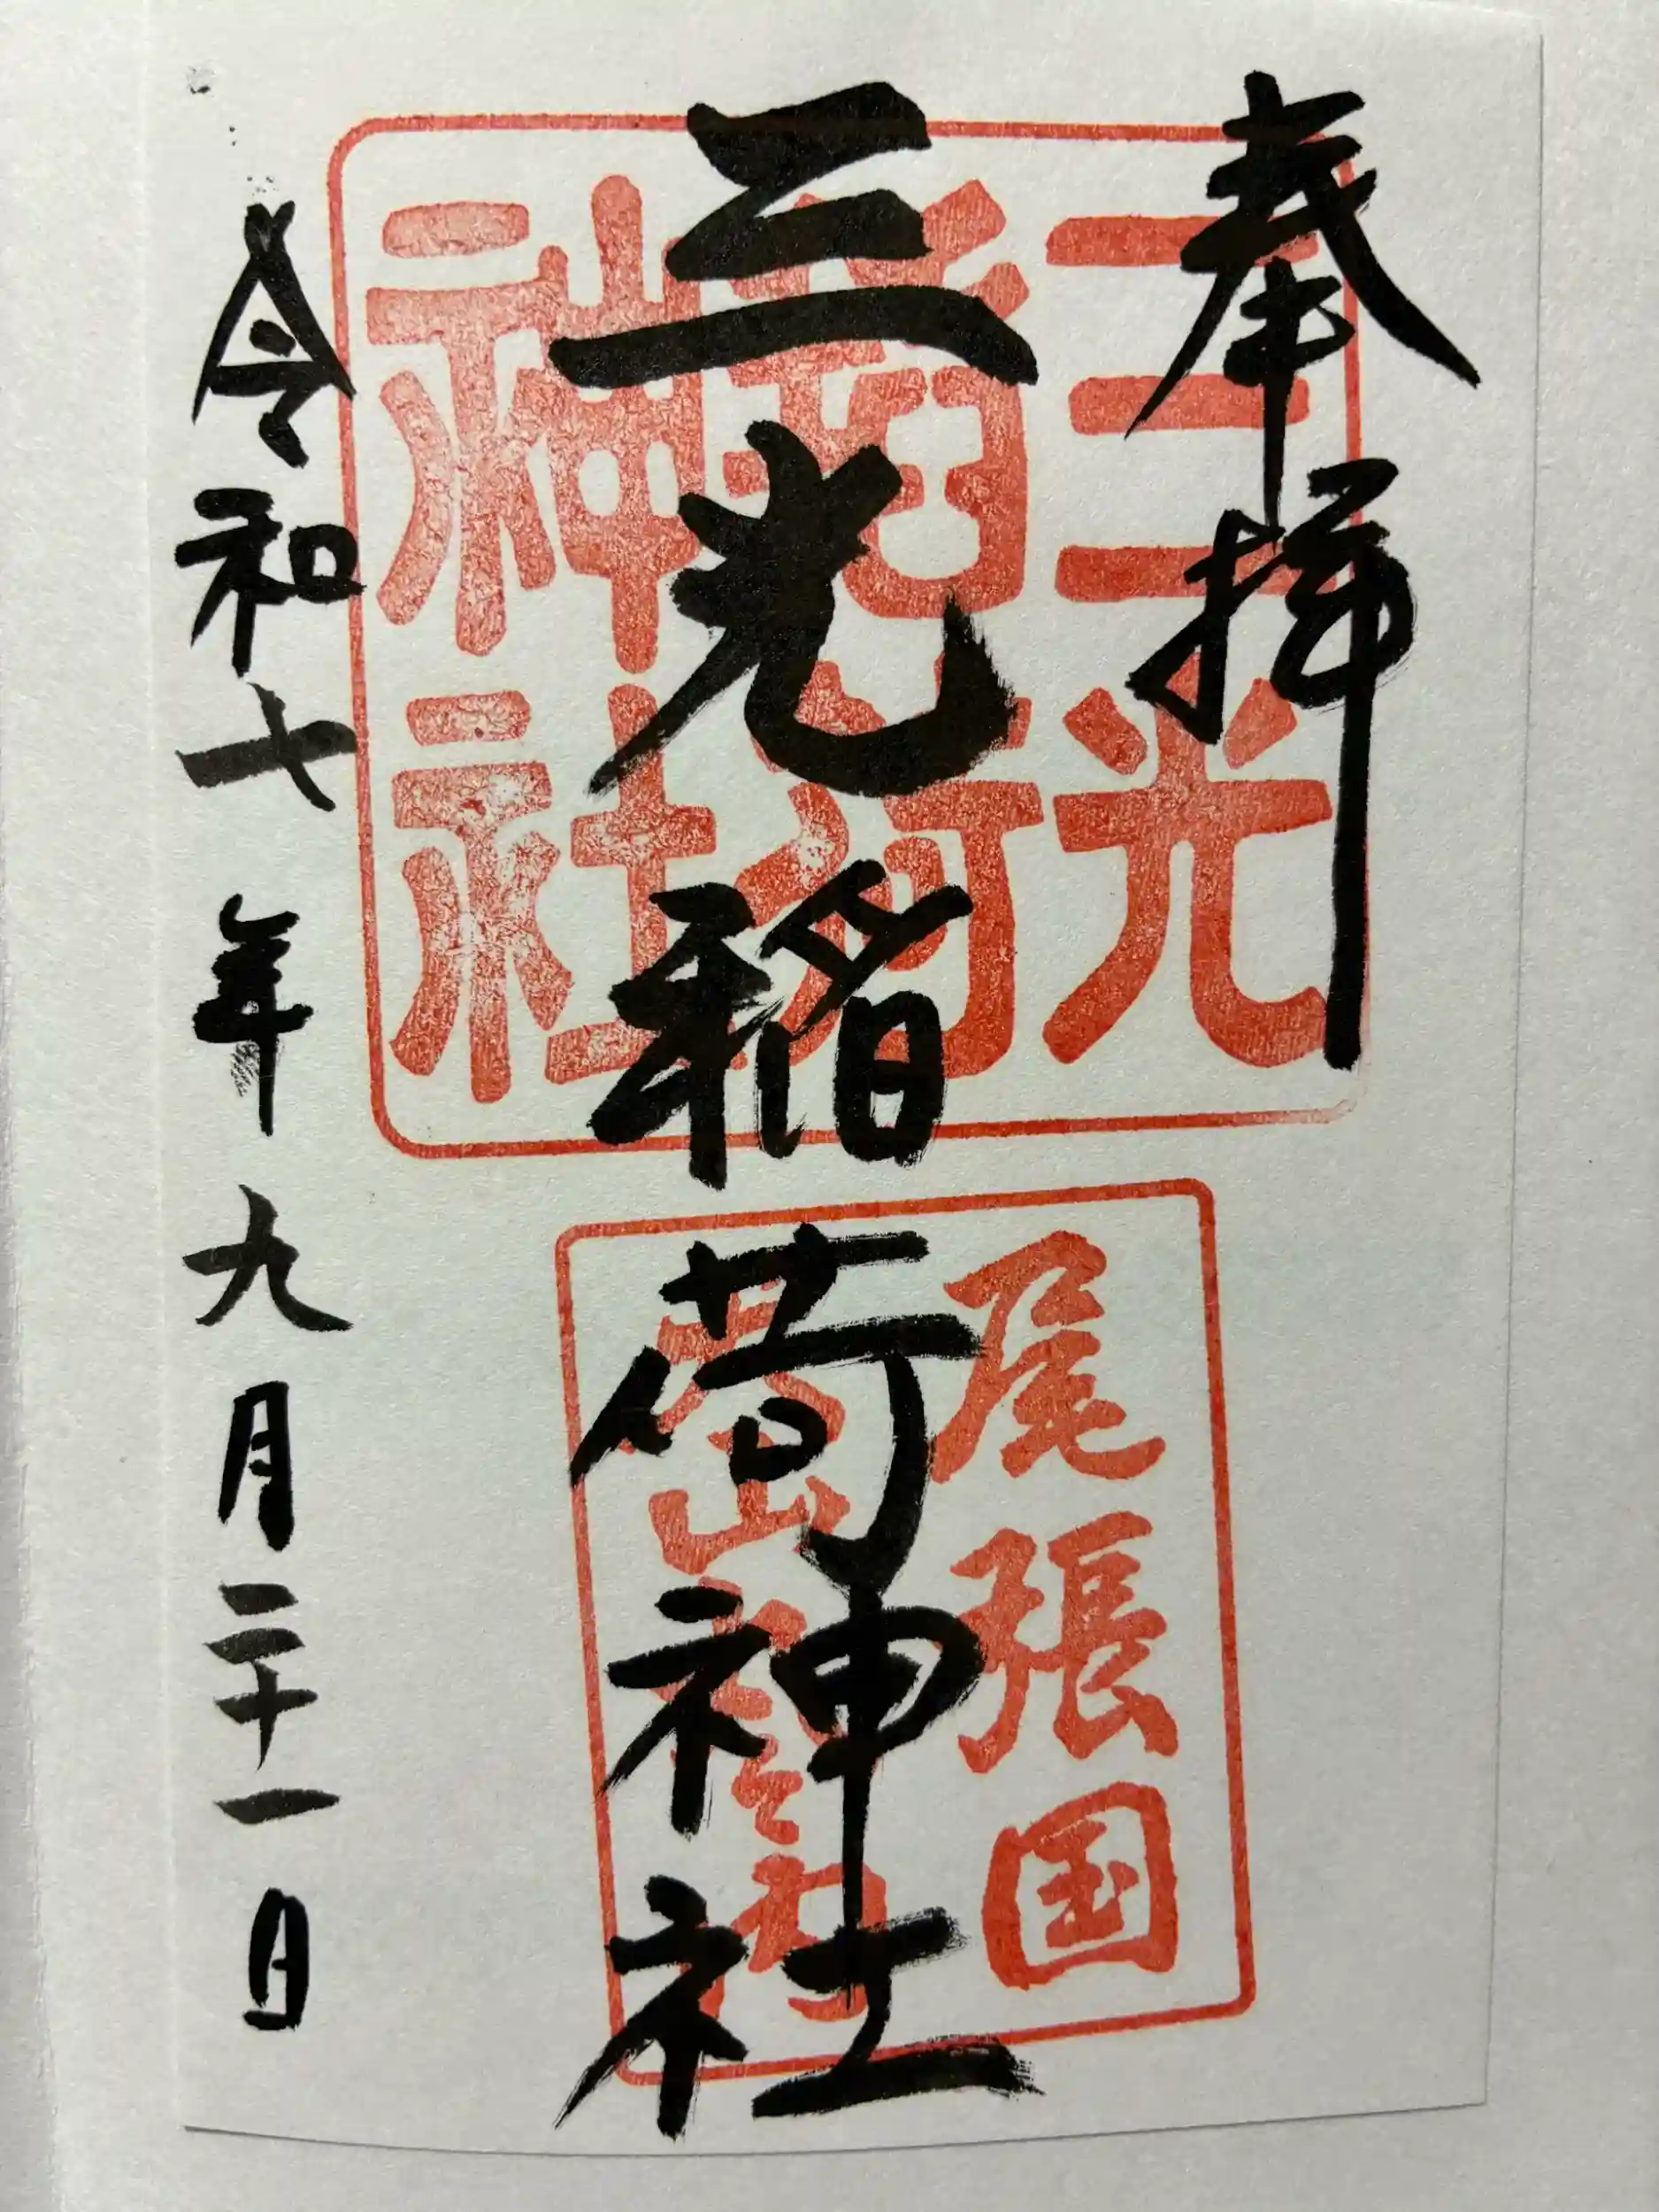 奉拝
三光稲荷神社
令和七年九月二十一日
三光
稲荷
神社
尾張国
犬山